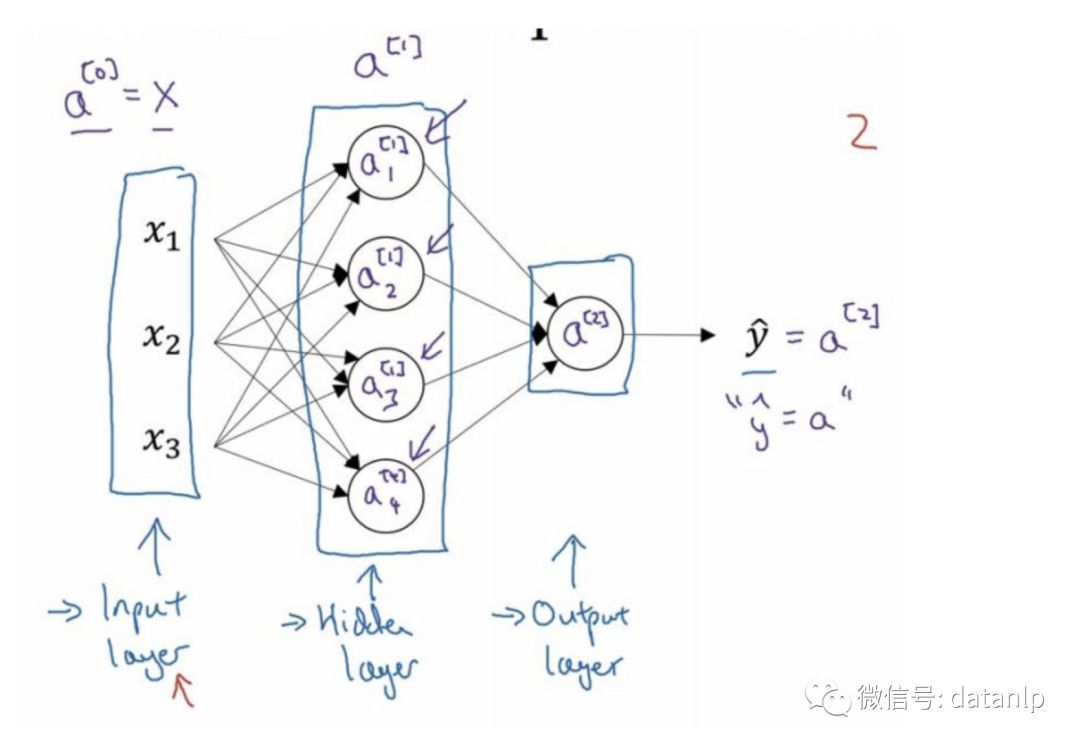 a^[1]
a^[0] = X
2
x₁
x₂
x₃
a₁^[1]
a₂^[1]
a₃^[1]
a₄^[4]
a^[2]
ŷ = a^[2]
"ŷ = a"
→ Input
layer
→ Hidden
layer
→ Output
layer
微信号: datanlp